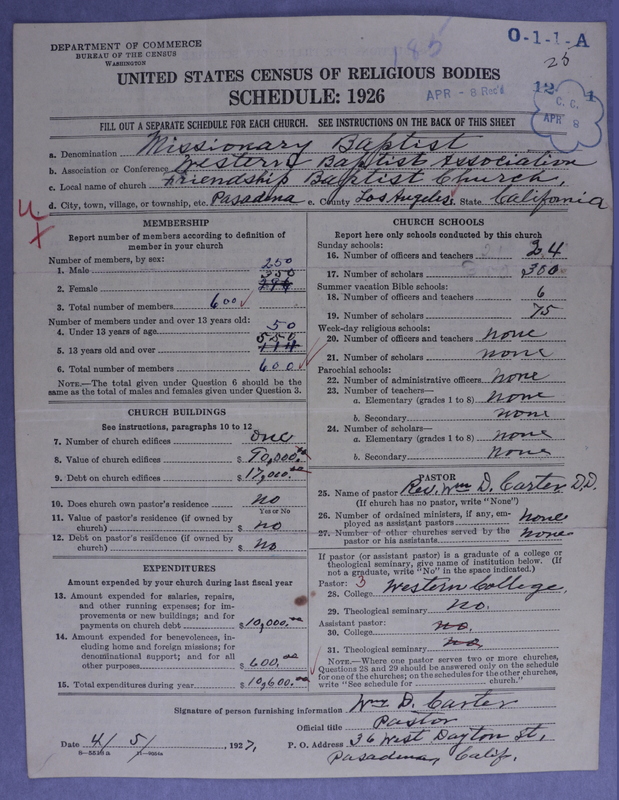 DEPARTMENT OF COMMERCE
BUREAU OF THE CENSUS
WASHINGTON
185
O-1-1-A
25
UNITED STATES CENSUS OF RELIGIOUS BODIES
SCHEDULE: 1926
APR - 8 Rec'd
12-
1
C. C.
APR 8
FILL OUT A SEPARATE SCHEDULE FOR EACH CHURCH. SEE INSTRUCTIONS ON THE BACK OF THIS SHEET
a. Denomination Missionary Baptist
b. Association or Conference Western Baptist Association
c. Local name of church Friendship Baptist Church,
d. City, town, village, or township, etc. Pasadena e. County Los Angeles f. State California
MEMBERSHIP
Report number of members according to definition of
member in your church
Number of members, by sex:
1. Male 250
2. Female 350
3. Total number of members 600
Number of members under and over 13 years old:
4. Under 13 years of age 50
5. 13 years old and over 550
114
6. Total number of members 600
NOTE.—The total given under Question 6 should be
the same as the total of males and females given under Question 3.
CHURCH BUILDINGS
See instructions, paragraphs 10 to 12
7. Number of church edifices one
8. Value of church edifices $ 90,000.00
9. Debt on church edifices $ 17,000.00
10. Does church own pastor's residence no
Yes or No
11. Value of pastor's residence (if owned by
church) $ no
12. Debt on pastor's residence (if owned by
church) $ no
EXPENDITURES
Amount expended by your church during last fiscal year
13. Amount expended for salaries, repairs,
and other running expenses; for im-
provements or new buildings; and for
payments on church debt $ 10,000.00
14. Amount expended for benevolences, in-
cluding home and foreign missions; for
denominational support; and for all
other purposes $ 600.00
15. Total expenditures during year $ 10,600.00
CHURCH SCHOOLS
Report here only schools conducted by this church
Sunday schools:
16. Number of officers and teachers 24
17. Number of scholars 300
Summer vacation Bible schools:
18. Number of officers and teachers 6
19. Number of scholars 75
Week-day religious schools:
20. Number of officers and teachers none
21. Number of scholars none
Parochial schools:
22. Number of administrative officers none
23. Number of teachers—
a. Elementary (grades 1 to 8) none
b. Secondary none
24. Number of scholars—
a. Elementary (grades 1 to 8) none
b. Secondary none
PASTOR
25. Name of pastor Rev. Wm D. Carter D.D.
(If church has no pastor, write "None")
26. Number of ordained ministers, if any, em-
ployed as assistant pastors none
27. Number of other churches served by the
pastor or his assistants none
If pastor (or assistant pastor) is a graduate of a college or
theological seminary, give name of institution below. (If
not a graduate, write "No" in the space indicated.)
Pastor: 3
28. College Western College.
29. Theological seminary no.
Assistant pastor:
30. College no.
31. Theological seminary no.
NOTE.—Where one pastor serves two or more churches,
Questions 28 and 29 should be answered only on the schedule
for one of the churches; on the schedules for the other churches,
write "See schedule for church."
Signature of person furnishing information Wm D. Carter
Official title Pastor
Date 4/5/, 1927, P. O. Address 36 West Dayton St,
8—5518 a
Pasadena, Calif.